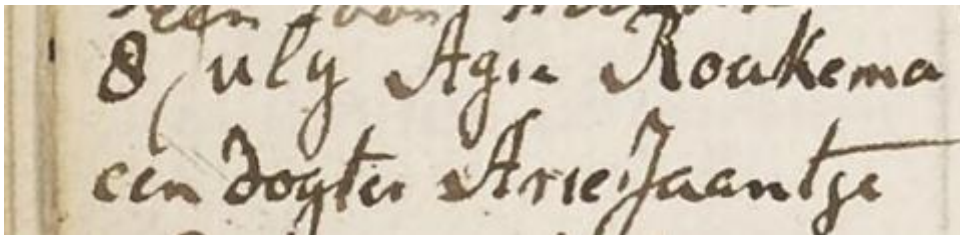 8 July Agie Roukema
een dogter Arie Jaantje